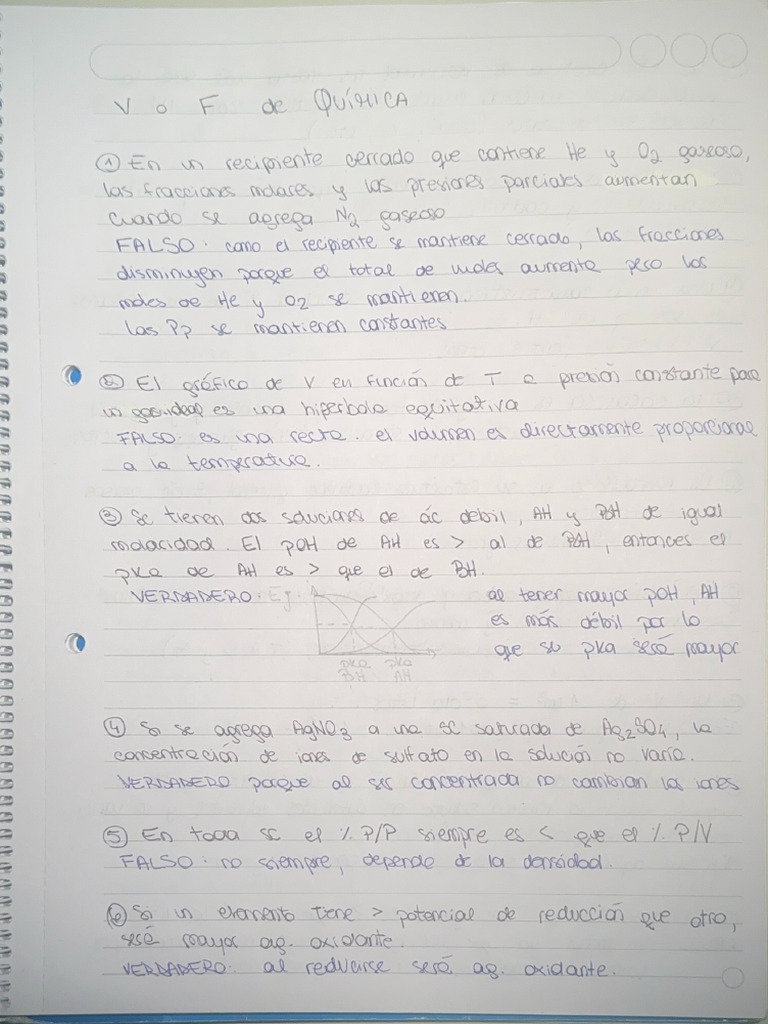 V o F de QUÍMICA
① En un recipiente cerrado que contiene He y O2 gaseoso,
las fracciones molares y las presiones parciales aumentan
cuando se agrega N2 gaseoso
FALSO: como el recipiente se mantiene cerrado, las fracciones
disminuyen porque el total de moles aumenta pero los
moles de He y O2 se mantienen.
las Pp se mantienen constantes
② El gráfico de V en función de T a presión constante para
un gas ideal es una hiperbola equitativa
FALSO: es una recta. el volumen es directamente proporcional
a la temperatura.
③ Se tienen dos soluciones de ác débil, AH y BH de igual
molaridad. El pOH de AH es > al de BH, entonces el
pKa de AH es > que el de BH.
VERDADERO. Ej.
al tener mayor pOH, AH
es más débil por lo
que su pKa será mayor
pKa pKa
BH AH
④ Si se agrega AgNO3 a una sc saturada de Ag2SO4, la
concentración de iones de sulfato en la solución no varía.
VERDADERO porque al ser concentrada no cambian los iones
⑤ En toda sc el % P/P siempre es < que el % P/V
FALSO: no siempre, depende de la densidad.
⑥ Si un elemento tiene > potencial de reducción que otro,
será mayor ag. oxidante.
VERDADERO: al reducirse será ag. oxidante.